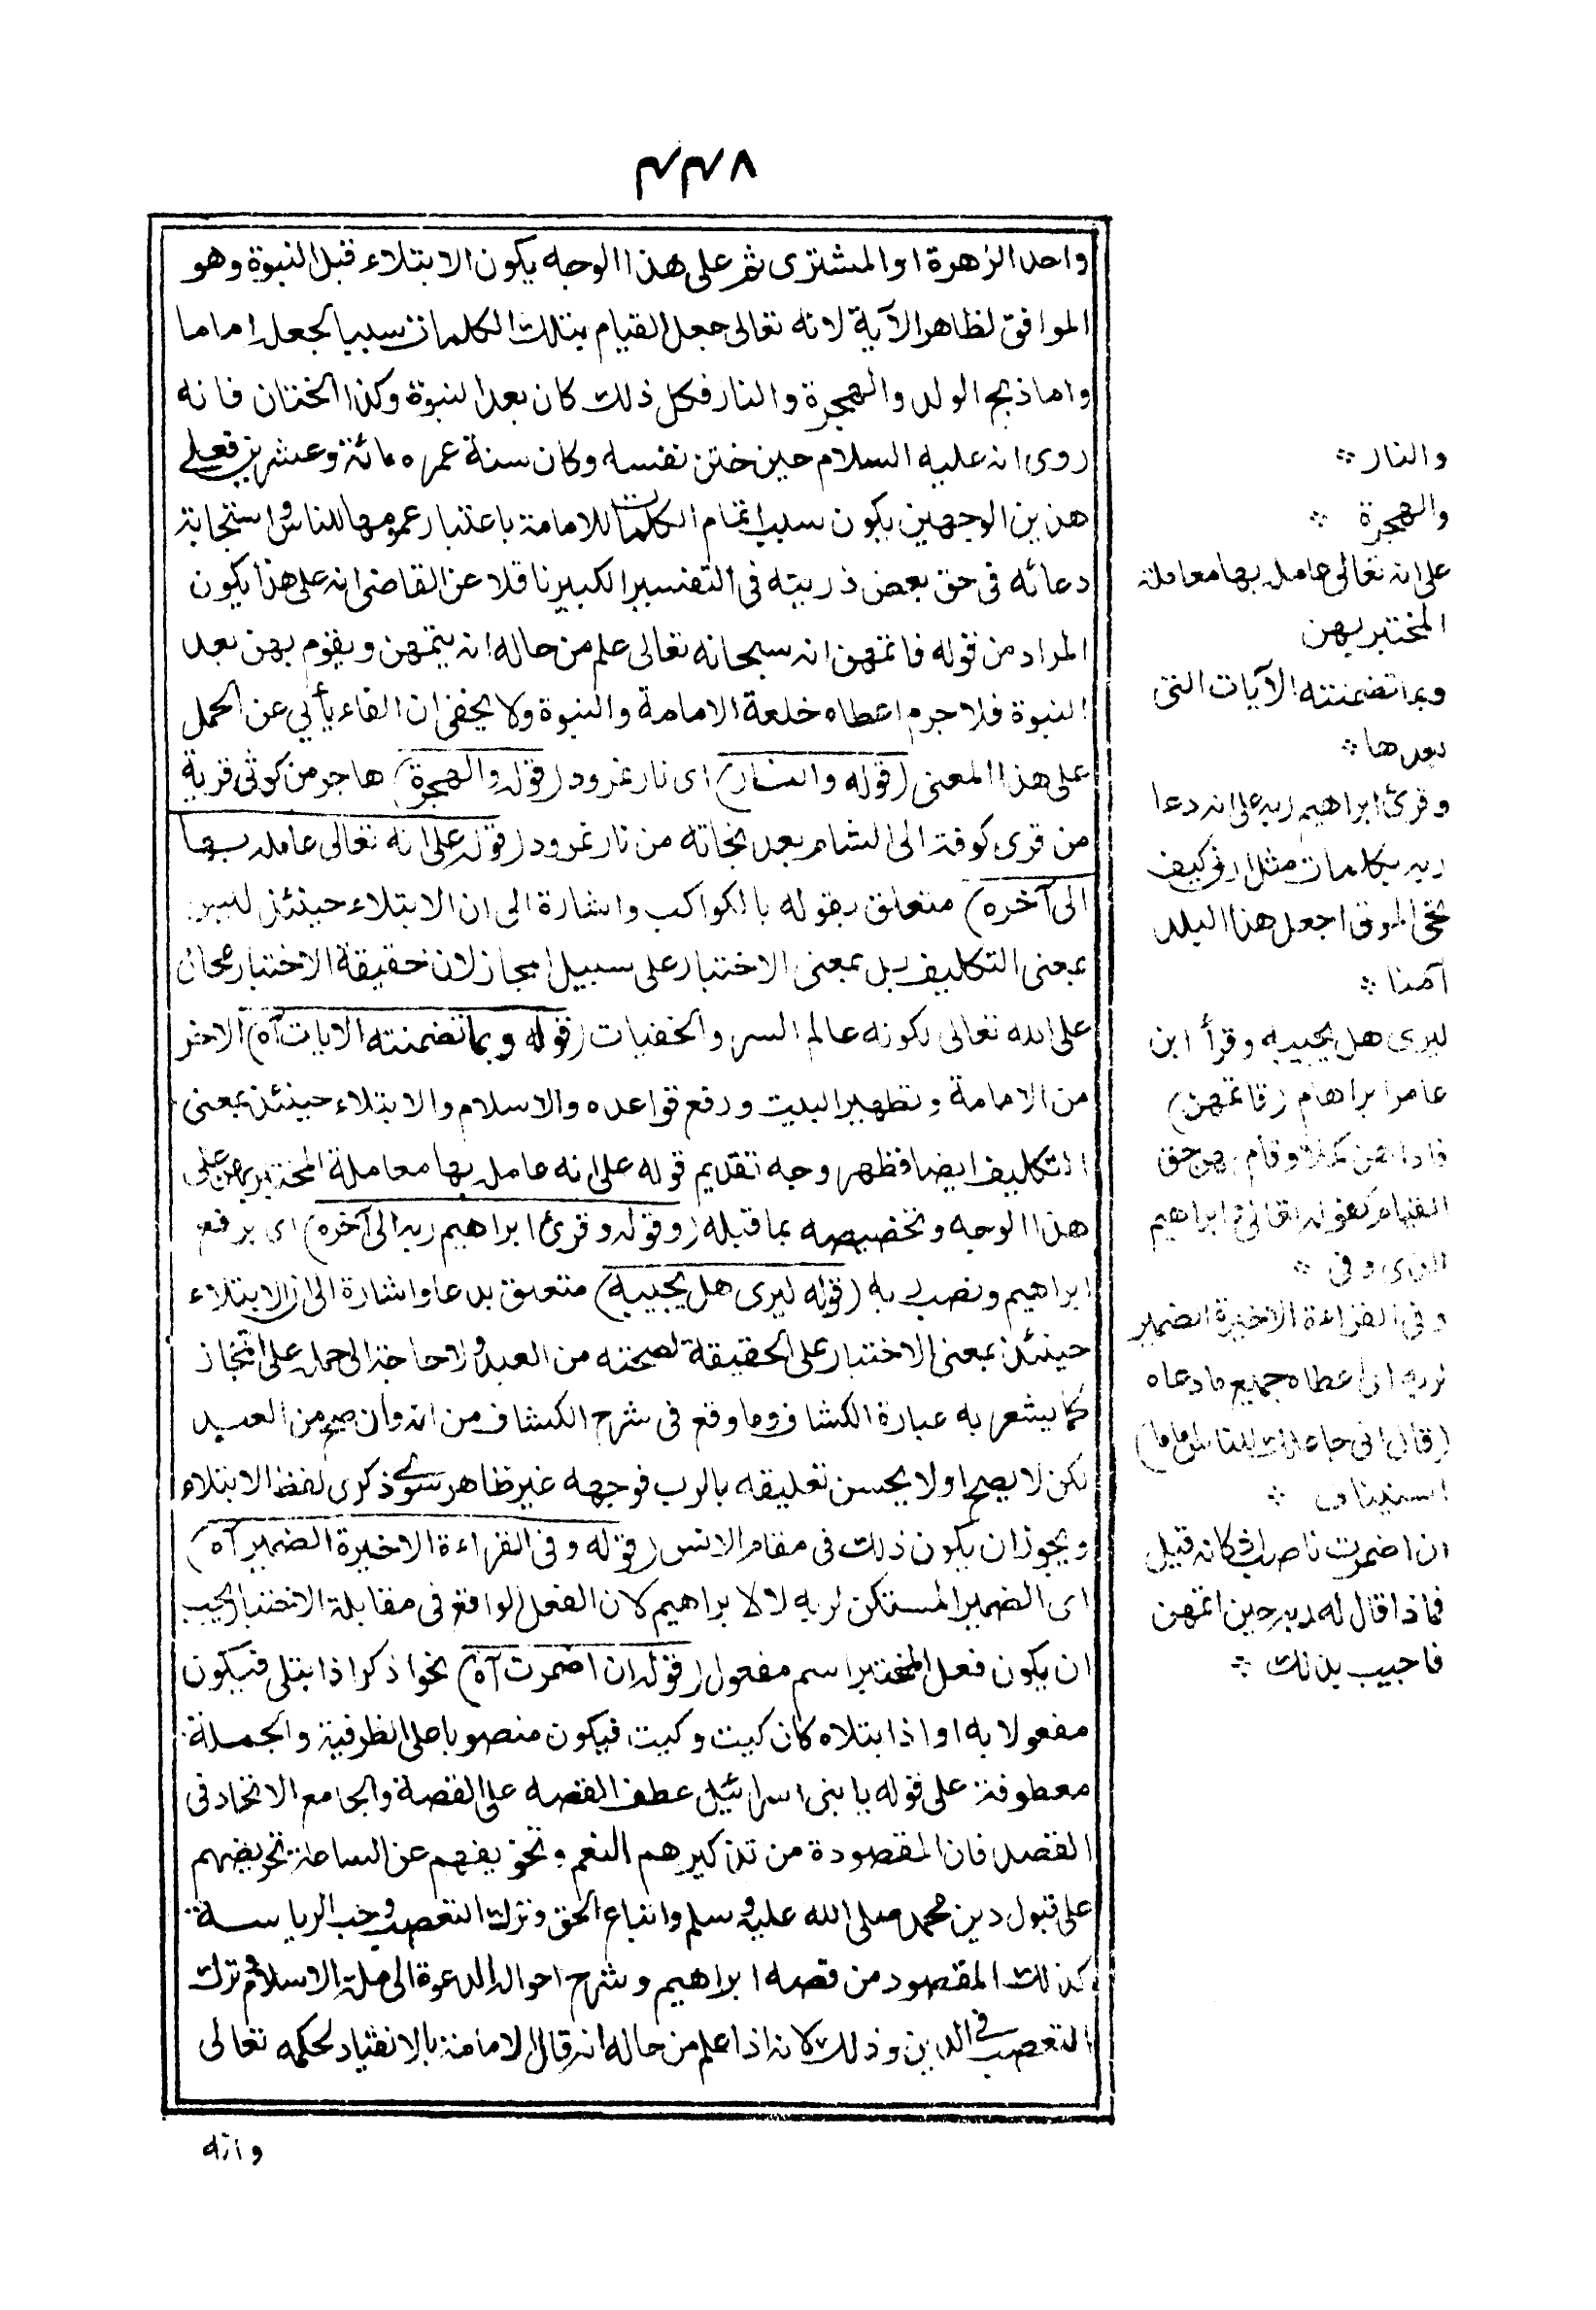 ٤٤٨
واحد الزهرة او المشترى ثم على هذا الوجه يكون الابتلاء قبل النبوة وهو
الموافق لظاهر الآية لانه تعالى جعل القيام بتلك الكلمات سببا لجعله اماما
واما ذبح الولد والهجرة والنار فكل ذلك كان بعد النبوة وكذا الختان فانه
روى انه عليه السلام حين ختن نفسه وكان سنة عمره مائة وعشرين فعلى
هذين الوجهين يكون سببا تمام الكلمات للامامة باعتبار عمومها للناس واستجابة
دعائه فى حق بعض ذريته فى التفسير الكبير ناقلا عن القاضى انه على هذا يكون
المراد من قوله فاتمهن انه سبحانه تعالى علم من حاله انه يتمهن ويقوم بهن بعد
النبوة فلا جرم اعطاه خلعة الامامة والنبوة ولا يخفى ان الفاء يأبى عن الحمل
على هذا المعنى (قوله والنار) اى نار نمرود (قوله والهجرة) هاجر من كوثى قرية
من قرى كوفة الى الشام بعد نجاته من نار نمرود (قوله على انه تعالى عامله بها
الى آخره) متعلق بقوله بالكواكب واشارة الى ان الابتلاء حينئذ ليس
بمعنى التكليف بل بمعنى الاختبار على سبيل المجاز لان حقيقة الاختبار محال
على الله تعالى لكونه عالم السر والخفيات (قوله وبما تضمنته الايات آه) الاخر
من الامامة وتطهير البيت ورفع قواعده والاسلام والابتلاء حينئذ بمعنى
التكليف ايضا فظهر وجه تقديم قوله على انه عامل بها معاملة المختبر بهن على
هذا الوجه وتخصيصه بما قبله (وقوله وقرئ ابراهيم ربه الى آخره) اى برفع
ابراهيم ونصب ربه (قوله ليرى هل يجيبه) متعلق بدعا واشارة الى ان الابتلاء
حينئذ بمعنى الاختبار على الحقيقة لصحته من العبد ولا حاجة الى حمله على المجاز
كما يشعر به عبارة الكشاف وما وقع فى شرح الكشاف من انه وان صح من العبد
لكن لا يصح او لا يحسن تعليقه بالرب فوجهه غير ظاهر سوى ذكرى لفظ الابتلاء
ويجوز ان يكون ذلك فى مقام الانس (قوله وفى القراءة الاخيرة الضمير آه)
اى الضمير المستكن لربه لا لابراهيم لان الفعل الواقع فى مقابلة الاختبار يجب
ان يكون فعل المختبر اسم مفعول (قوله ان اضمرت آه) نحو اذكر اذ ابتلى فيكون
مفعولا به او اذ ابتلاه كان كيت وكيت فيكون منصوبا على الظرفية والجملة
معطوفة على قوله يا بنى اسرائيل عطف القصه على القصة والجامع الاتحاد فى
القصد فان المقصودة من تذكيرهم النعم وتخويفهم عن الساعة تحريضهم
على قبول دين محمد صلى الله عليه وسلم واتباع الحق وترك التعصب وحب الرياسة
كذلك المقصود من قصه ابراهيم وشرح احواله الدعوة الى ملة الاسلام وترك
التعصب فى الدين وذلك لانه اذا علم من حاله انه قال الامامة بالانقياد لحكمه تعالى
وانه
والنار
والهجرة
على انه تعالى عامله بها معاملة
المختبر بهن
وبما تضمنته الآيات التى
بعدها
وقرئ ابراهيم ربه على انه دعا
ربه بكلمات مثل ارنى كيف
تحى الموتى اجعل هذا البلد
آمنا
ليرى هل يجيبه وقرأ ابن
عامر ابراهام (فاتمهن)
فاداهن كملا وقام بهن حق
القيام كقوله تعالى وابراهيم
الذى وفى
وفى القراءة الاخيرة الضمير
لربه اى اعطاه جميع ما دعاه
(قال انى جاعلك للناس اماما)
استيناف
ان اضمرت ناصب اذ كانه قيل
فماذا قال له ربه حين اتمهن
فاجيب بذلك